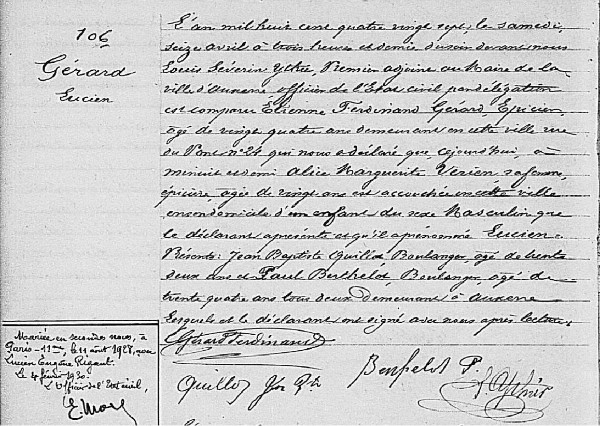 106
Gérard
Lucien
L'an mil huit cent quatre vingt sept, le samedi,
seize avril à trois heures et demie du soir devant nous
Louis Séverin Premier adjoint au Maire de la
ville d'Auxerre officier de l'Etat civil par délégation
est comparu Etienne Ferdinand Gérard, Epicier,
agé de vingt quatre ans demeurant en cette ville rue
du Pont n° 24 qui nous a déclaré que, cejourd'hui, à
minuit et demi Alice Marguerite sa femme,
épicière, agée de vingt ans est accouchée en cette ville
en son domicile d'un enfant du sexe Masculin que
le déclarant a présenté et qu'il a prénommé Lucien.
Présents: Jean Baptiste Boulanger, agé de trente
deux ans et Paul Boulanger, agé de
trente quatre ans tous deux Demeurant à Auxerre
Lesquels et le déclarant ont signé avec nous après lecture.
Gérard Ferdinand
P.
Mariée en secondes noces, à
Paris-11me, le 11 août 1928, avec
Lucien Eugène Rigault.
Le 4 février 1930.
L'Officier de l'Etat civil,